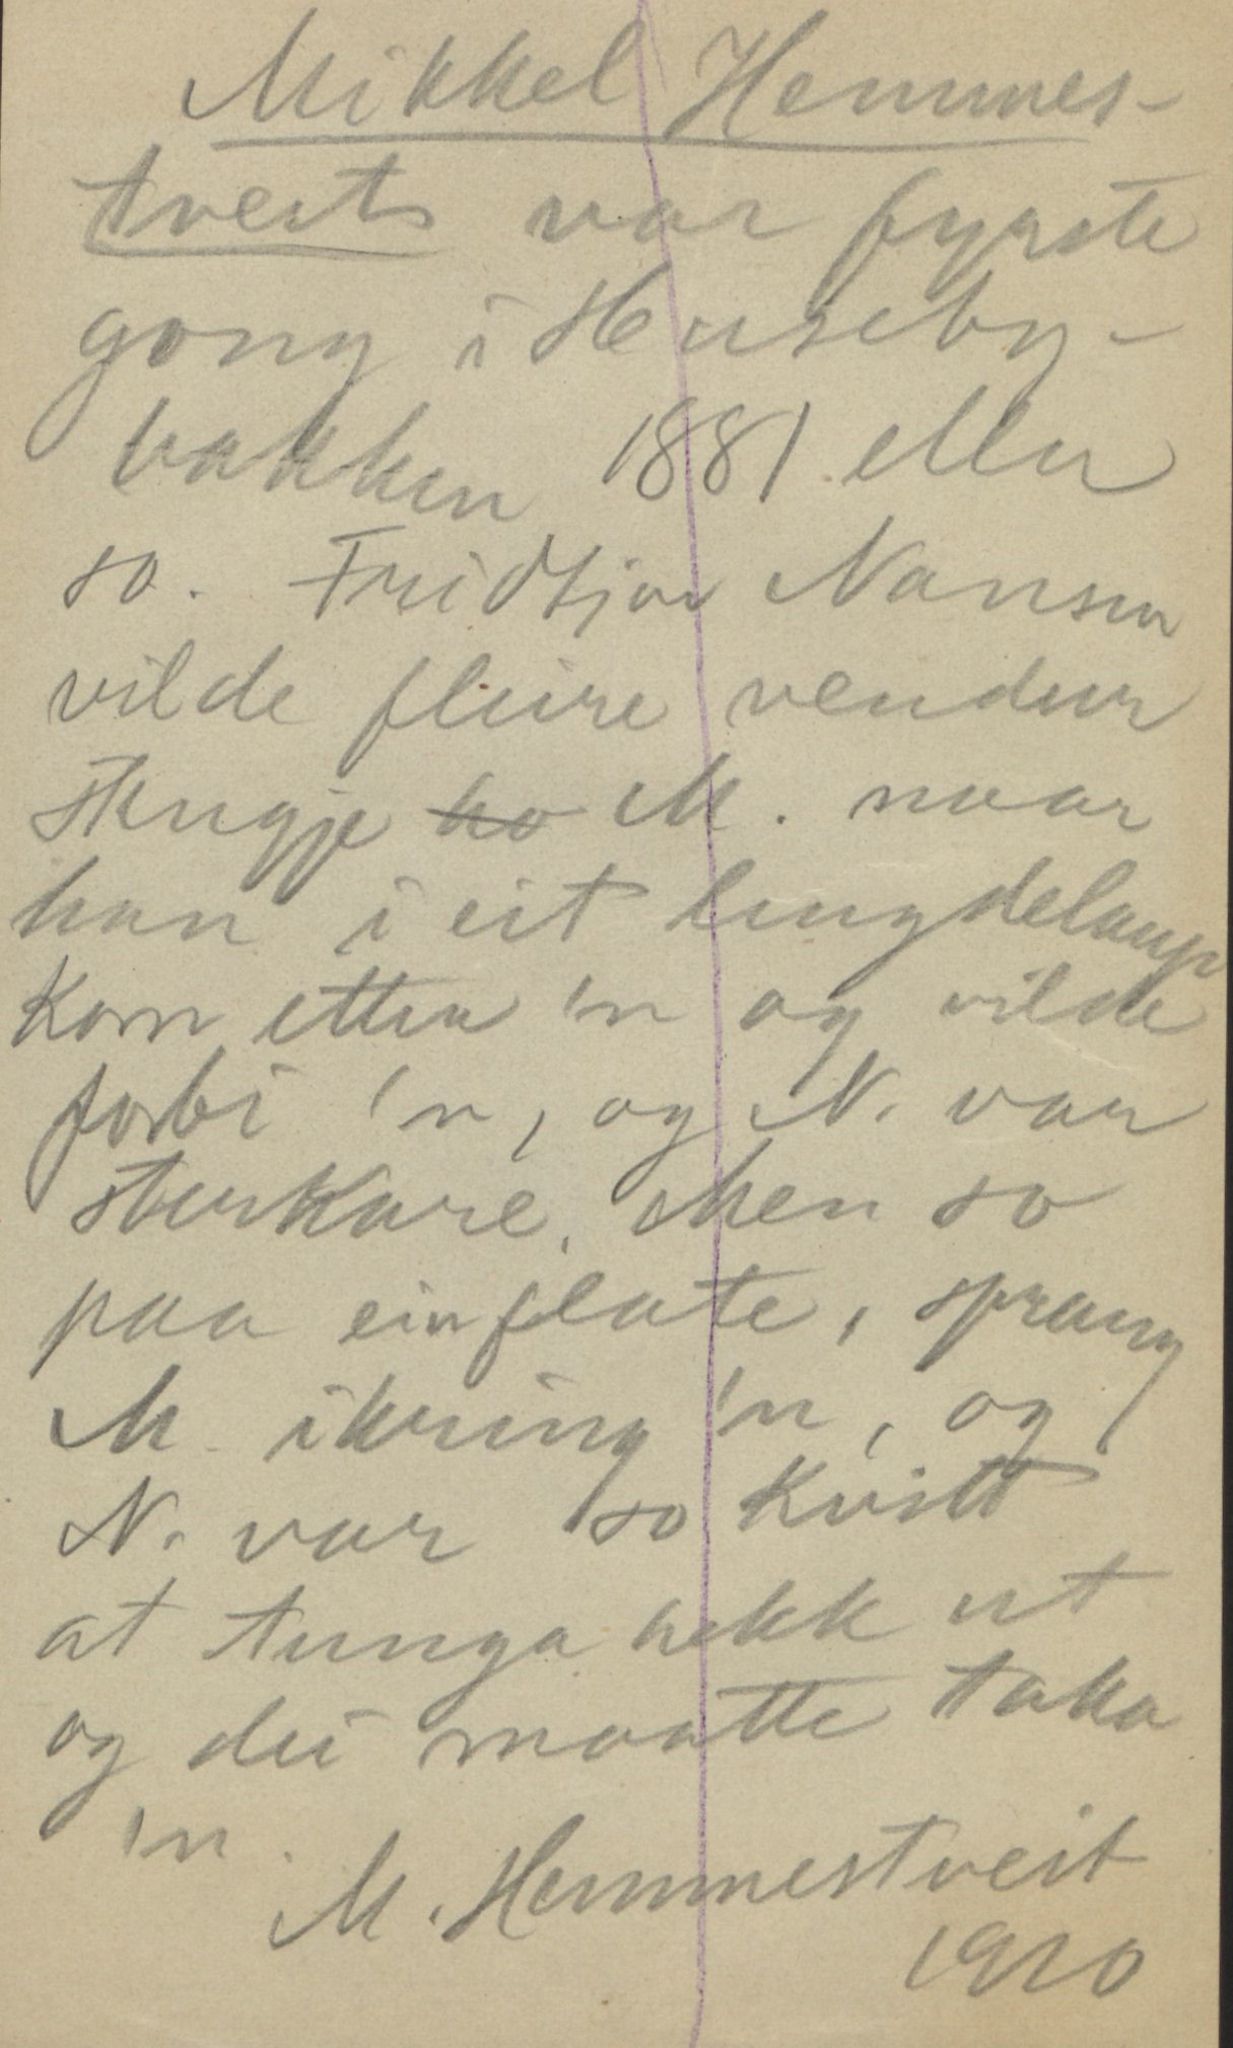 Mikkel Hemmes-
tveit var fyrste
gong i Huseby-
bakken 1881 eller
so. Fridtjov Nansen
vilde fleire vendur
skugje ho M. naar
han i eit lengdelaup
kom etter 'n og vilde
forbi 'n, og N. var
sterkare. Men so
paa ein flate, sprang
M ikring 'n, og
N. var so kvitt
at tunga hekk ut
og dei maatte taka
'n.
M. Hemmestveit
1920